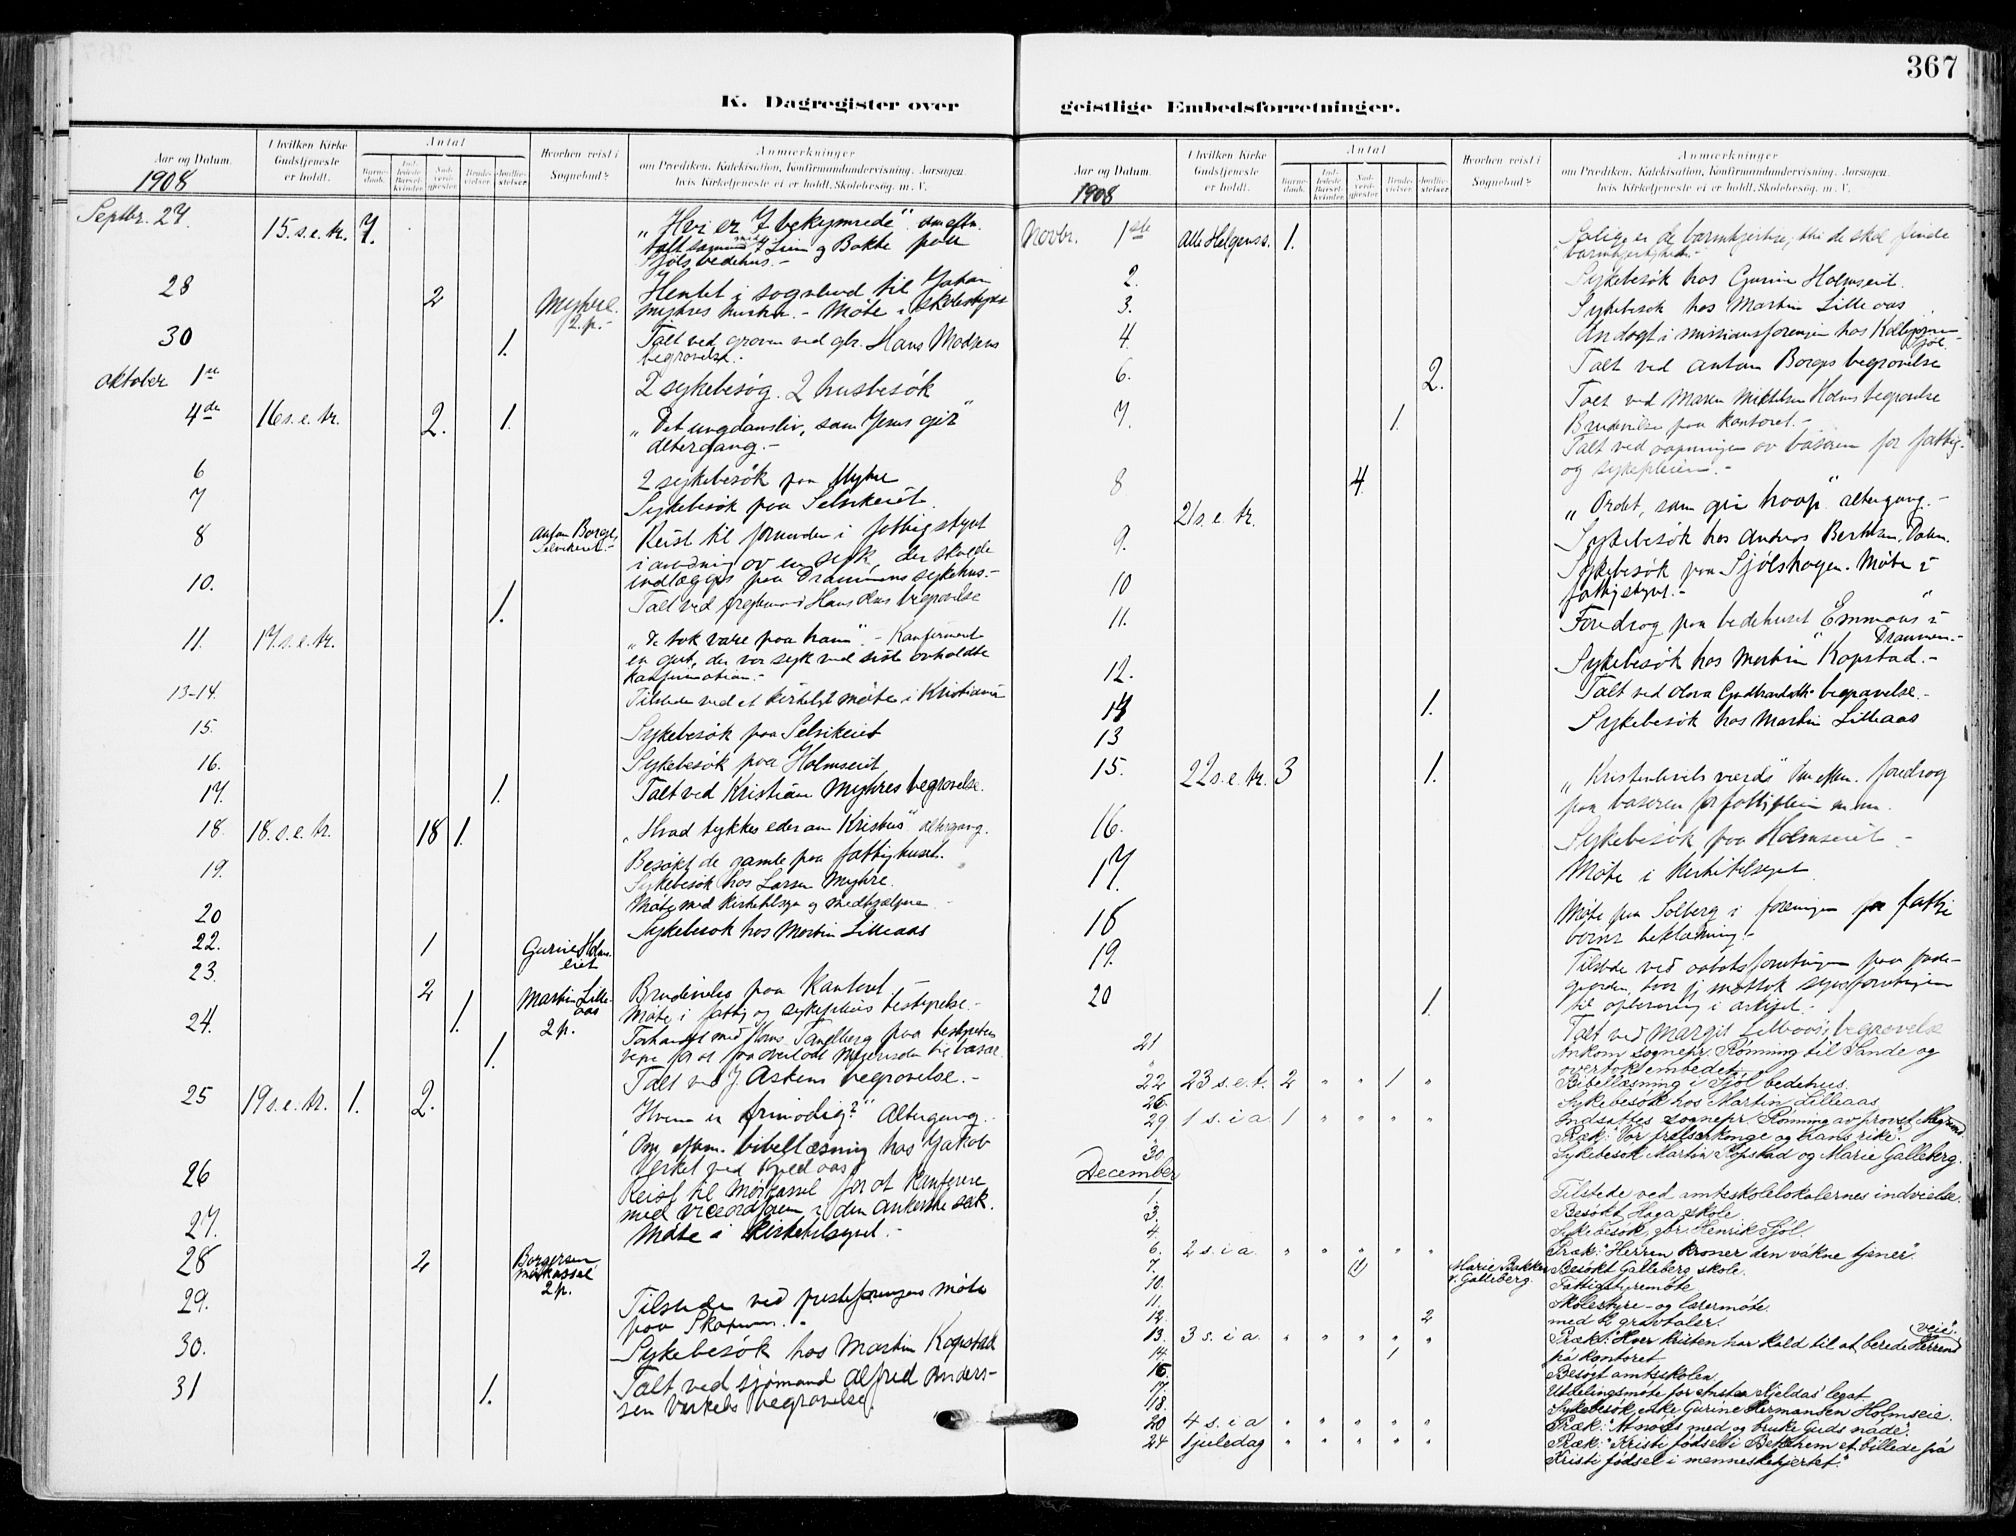 367
K. Dagregister over
geistlige Embedsforretninger.
Aar og Datum.
I hvilken Kirke Gudstjeneste er holdt.
Antal
Barnedaab.
Indledede Barselkvinder.
Nadverdgjester.
Brudevielser.
Jordfæstelser.
Hvorhen reist i Sognebud?
Anmærkninger
om Prædiken, Katekisation, Konfirmandundervisning, Aarsagen,
hvis Kirketjeneste ei er holdt, Skolebesøg, m. V.
1908
Septbr. 27. 15. s. e. tr. 7. "Hvi er I bekymrede".
Sjøls bedehus.-
28 2 Myhre 2 p.- Hentet i sognebud til Johan
Myhres hustru. - Møte i skolestyre
30 1. Talt ved graven ved gbr. Hans Madsens
begravelse.
Oktober 1ste 2 sykebesøg. 2 husbesøk
4de 16 s. e. tr. 2. 1. "Det ungdomsliv, som Jesus gir"
altergang.-
6 2 sykebesøk paa Myhre
7 Sykebesøk paa Selvikeiet.
8 Anton Borge, Selvikeiet.- Reist til formanden i fattigstyret
i anledning av en syk, der skulde
indlægges paa Drammens sykehus.-
10. 1. Talt ved Hans Olsens begravelse
11. 17. s. e. tr. "De tok vare paa ham". - Konfirmerte
en gut, der var syk ved siste avholdte
konfirmation.-
13-14. Tilstede ved et kirkeligt møte i Kristiania
15. Sykebesøk paa Selvikeiet
16. Sykebesøk paa Holmseiet
17. 1. Talt ved Kristian Myhres begravelse.
18. 18. s. e. tr. 18 1. "Hvad tykkes eder om Kristus" altergang.
19. Besøkt de gamle paa fattighuset.
Sykebesøk hos Larsen Myhre.
20 Møte med kirketilsyn og medhjælpere
22. 1 Gurine Holmseiet Sykebesøk hos Martin Lilleaas
23. 2 Martin Lilleaas 2 p. Brudevielse paa kontoret -
24. 1. Møte i fattig og sykepleiens bestyrelse.-
1. Talt ved J. Askens begravelse.-
25 19 s. e. tr. 1. 2. "Hvem er frimodig?" Altergang.
Om eftm. bibellæsning hos Jakob
Verket ved
26 Reist til Mørkassel for at konferere
med viceordføren i den Ankerske sak.
27. Møte i kirketilsynet.-
28 2 Borgersen Mørkassel 2 p.
29. Tilstede ved møte
paa
30. Sykebesøk hos Martin Kopstad
31 1. Talt ved sjømand Alfred Andersen
Verkets begravelse.
1908
Novbr. 1ste Alle Helgenss. 1. Salige er de barmhjertige, thi de skal finde
barmhjertighed.-
2. Sykebesøk hos Gurine Holmseiet.
3. Sykebesøk hos Martin Lilleaas
4. Andagt i missionsforeningen hos Kolbjørnsen Sjøl.
6. 2. Talt ved Anton Borges begravelse
Talt ved Maren Mikkelsen Holms begravelse
7. 1. Brudevielse paa kontoret.-
Talt ved aapningen av basaren for fattig-
og sykepleien.-
8 21 s. e. tr. 4. "Ordet, som gir haap" altergang.-
9. Sykebesøk hos Andreas Berthelsen, Dalen.
10 Sykebesøk paa Sjølshagen. Møte i
fattigstyret.-
11. Foredrag paa bedehuset "Emmaus" i
Drammen.-
12. Sykebesøk hos Martin Kopstad.-
14 1. Talt ved Olava begravelse.-
13 Sykebesøk hos Martin Lilleaas
15. 22 s. e. tr. 3 1. "Kristenlivets værd" Om eftm. foredrag
paa basaren for fattigpleien m. m.
16. Sykebesøk paa Holmseiet -
17. Møte i kirketilsynet
18 Møte paa Solberg i foreningen for fattige
barns beklædning.-
19. Tilstede ved aabotsforretningen paa prestegaarden, hvor jeg mottok
til opbevaring i arkivet.-
20 1. Talt ved Margit Lilleaas's begravelse
21 Ankom sognepr. Rønning til Sande og
overtok embedet.
22 23 s. e. t. 2 " " 1 " Bibellæsning i Sjøl bedehus.
26. Sykebesøk hos Martin Lilleaas
29 1 s. i a. 1 " " " " Indsattes sognepr. Rønning av provst Mægrund.
Præk: "Vor frelserkonge og hans rike".
30 Sykebesøk Martin Kopstad og Marie Galleberg.
December
1. Tilstede ved amtskolelokalernes indvielse.
3. Besøkt Haga skole.
4. Sykebesøk, gbr. Henrik Sjøl.
6. 2 s. i a. " " " " " Præk: "Herren kroner den våkne tjener".
7. 2 Marie Bakken v. Galleberg. Besøkt Galleberg skole.
10. Fattigstyremøte
11. Skolestyre- og lærermøte.
12. 2 med 2 gravtaler.
13. 3 s. i a. " " " " " Præk: "Hver kristen har kald til at berede Herrens veie".
14. 1 på kontoret
15. Besøgt amtsskolen.
17. Utdelingsmøte for Anstea Kjeldås' legat
18. Sykebesøk, enke Gurine Hermansen Holmseie.
20 4 s. i a " " " " " Præk: "At nøies med og bruke Guds nåde".
24 1 juledag " " " " " Præk: "Kristi fødsel i Betlehem et billede på
Kristi fødsel i menneskehjertet."